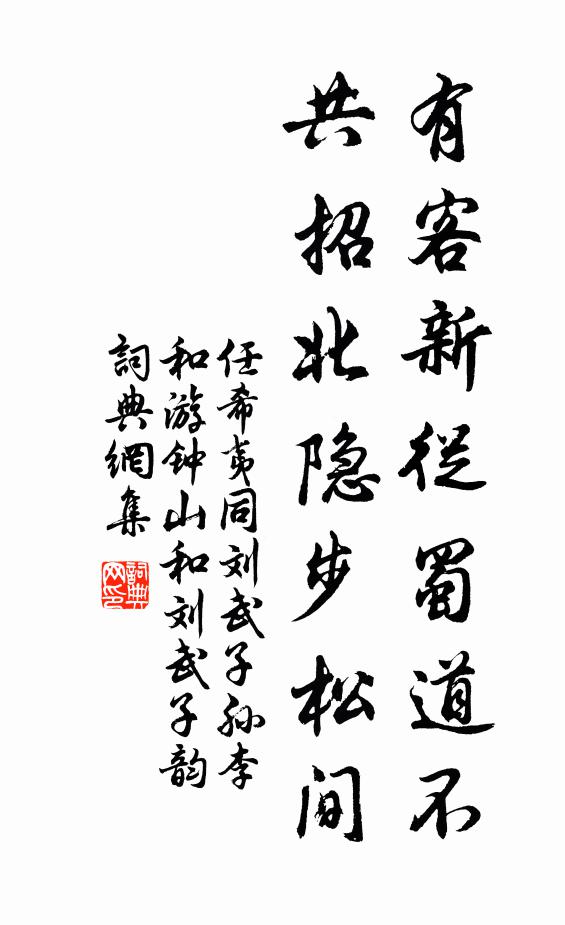 有客新従蜀道不
共招北隐步松间
任希夷同刘武子孙李
和游钟山和刘武子韵
詞典網集
詞典網印